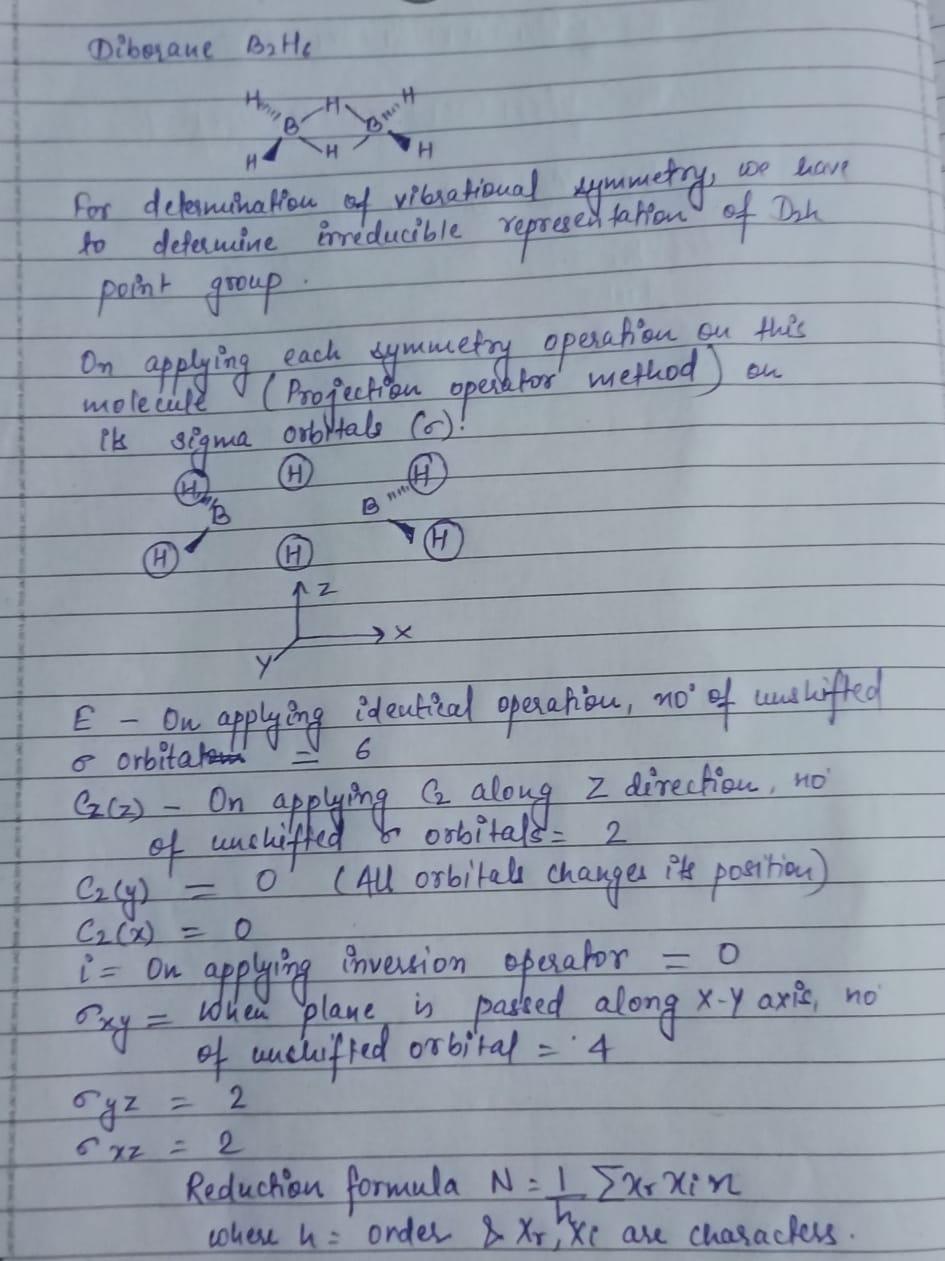 Diborane B2H6
H H H
B B
H H H
For determination of vibrational symmetry, we have
to determine irreducible representation of D2h
point group.
On applying each symmetry operation on this
molecule (Projection operator method) on
its sigma orbitals (σ):
H H H
B B
H H H
Z
X
Y
E - On applying identical operation, no. of unshifted
σ orbital = 6
C2(z) - On applying C2 along Z direction, no.
of unshifted σ orbitals = 2
C2(y) = 0 (All orbitals changes its position)
C2(x) = 0
i = On applying inversion operator = 0
σxy = When plane is passed along X-Y axis, no.
of unshifted orbital = 4
σyz = 2
σxz = 2
Reduction formula N = 1/h Σ xr xi n
where h = order & xr, xi are characters.